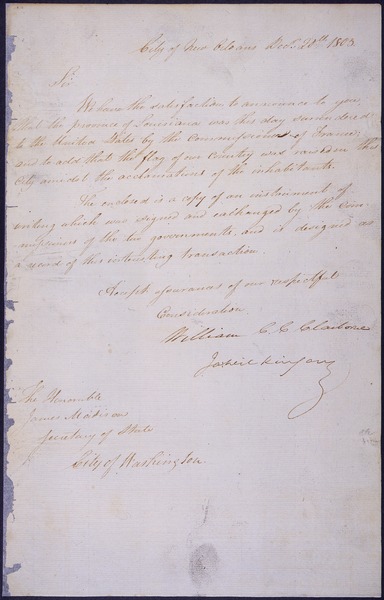 City of New Orleans Dec. 20th 1803.
Sir
We have the satisfaction to announce to you,
that the province of Louisiana was this day surrendered
to the United States by the commissioner of France;
and to add that the flag of our country was raised in this
City amidst the acclamations of the inhabitants.
The enclosed is a copy of an instrument of
writing which was signed and exchanged by the com-
missioners of the two governments, and is designed as
a record of this interesting transaction.
Accept assurances of our respectful
Consideration
William C. C. Claiborne
Ja Wilkinson
The Honorable
James Madison
Secretary of State
City of Washington